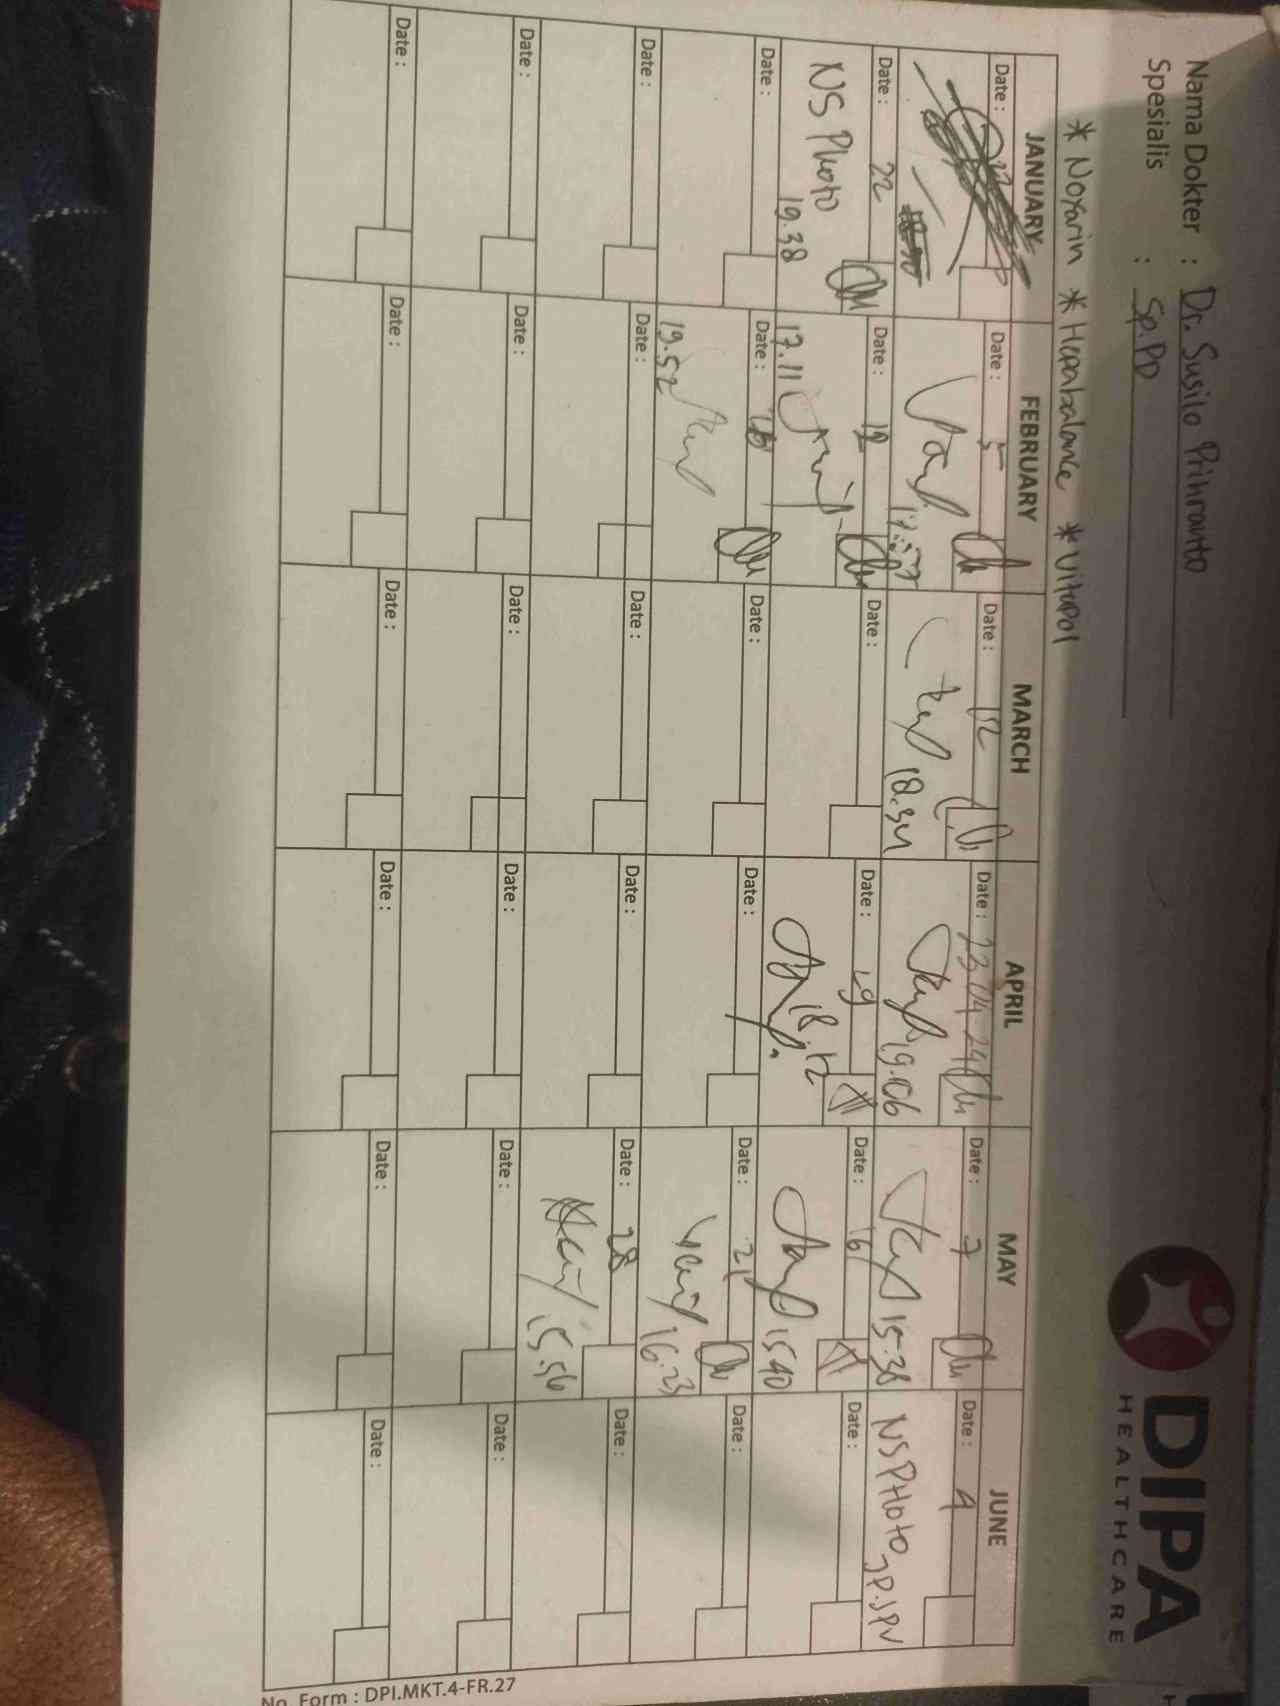 Nama Dokter : Dr. Susilo Prihranto
Spesialis : Sp.PD
DIPA
HEALTHCARE
* Noxarin * Hepabalance * Vitapol
JANUARY FEBRUARY MARCH APRIL MAY JUNE
Date : Date : 5 Date : 12 Date : 23.04.24 Date : 7 Date : 4
18.34 19.06 15.38 NS PHOTO
Date : 22 Date : 12 Date : Date : 29 Date : 16 Date :
NS Photo 19.38 17.11 18.12 15.40
Date : Date : Date : Date : Date : 21 Date :
19.52 16.23
Date : Date : Date : Date : Date : 28 Date :
15.56
Date : Date : Date : Date : Date : Date :
Date : Date : Date : Date : Date : Date :
No. Form : DPI.MKT.4-FR.27